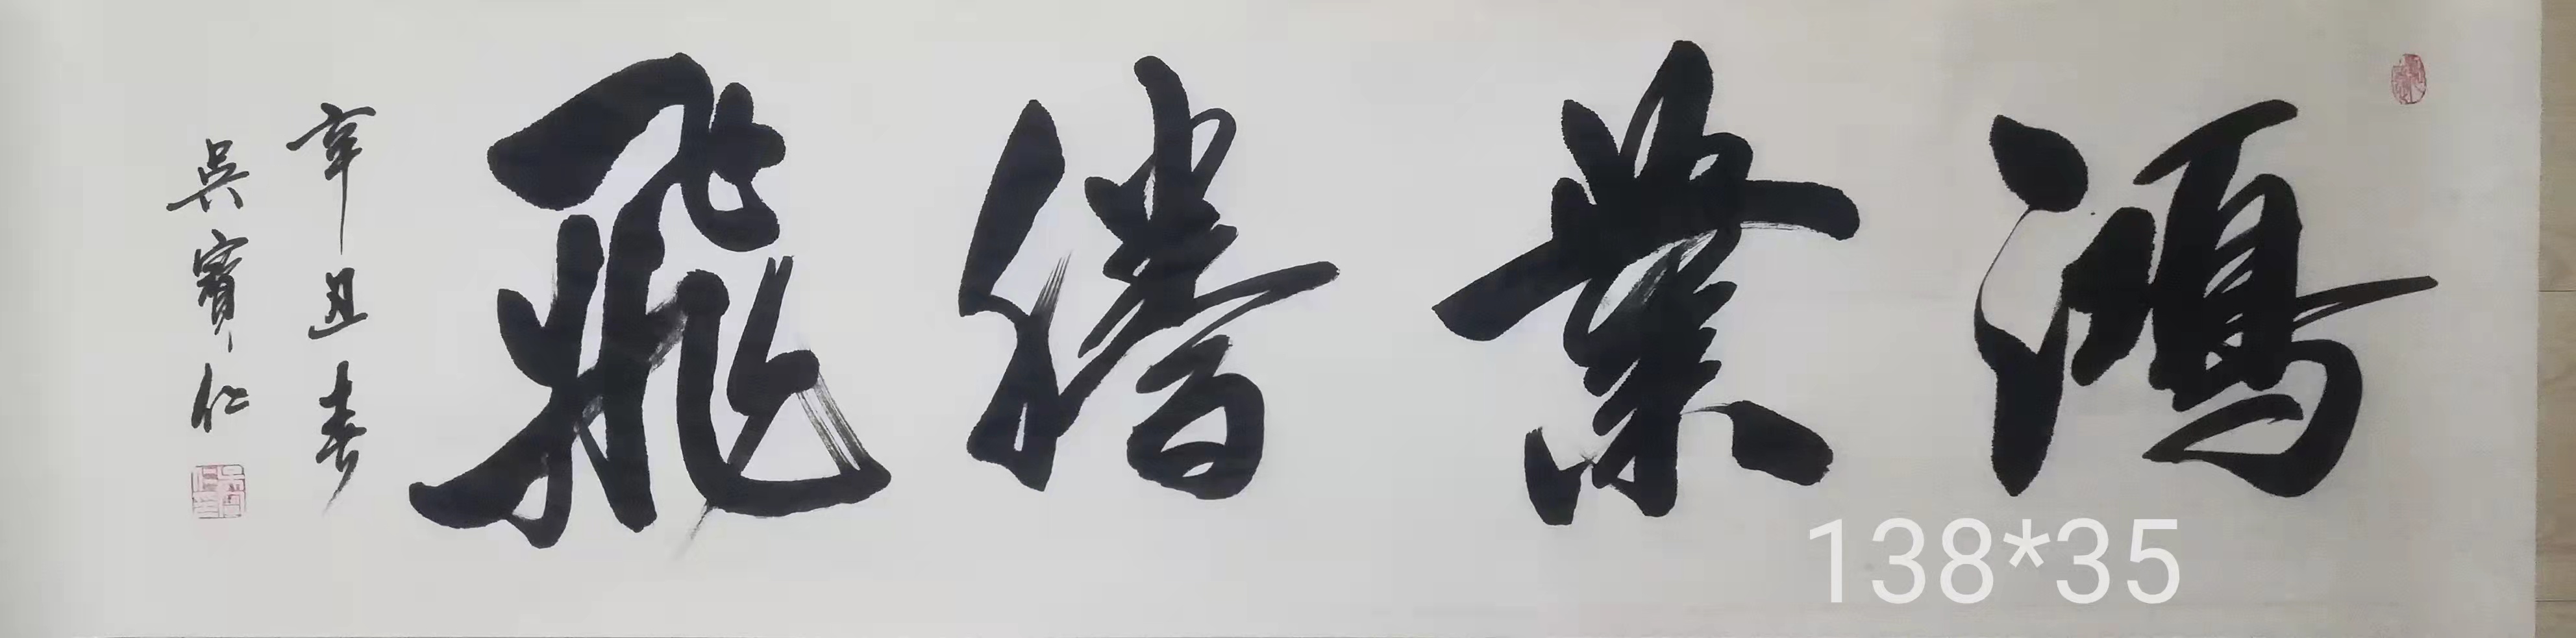 鴻業騰飛
辛丑春
吳寶仁
138*35